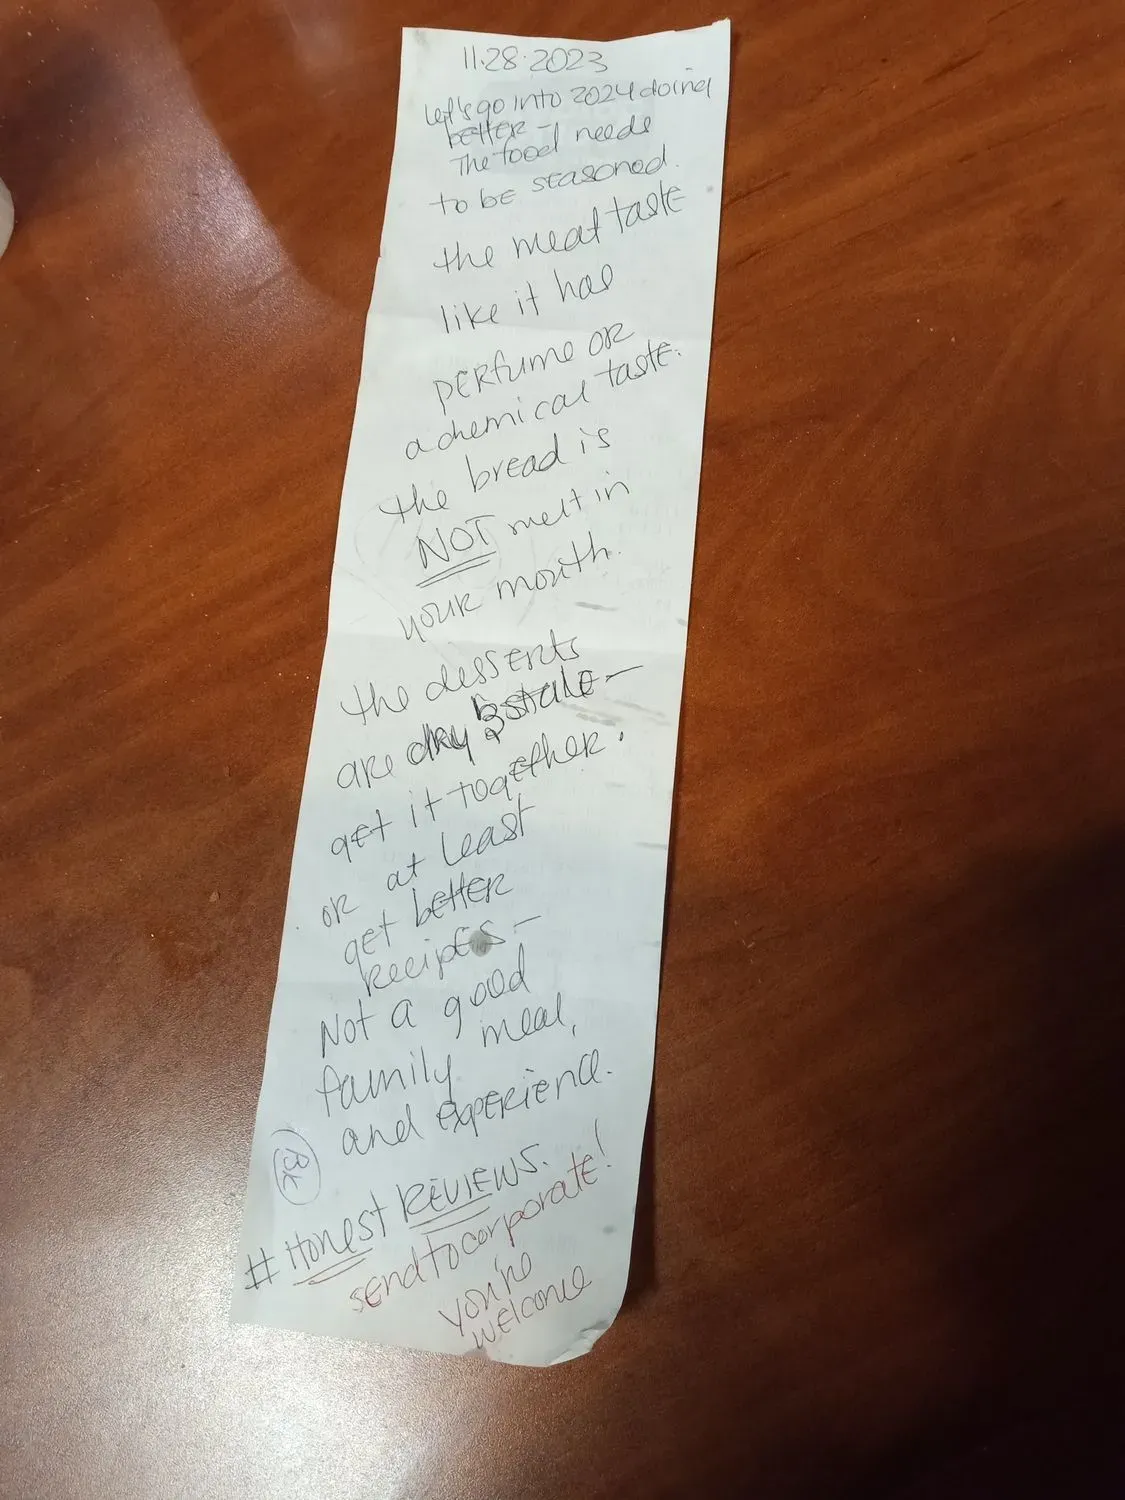 11.28.2023
Let's go into 2024 doing
better -
The food needs
to be seasoned.
the meat taste
like it has
perfume or
a chemical taste.
the bread is
NOT melt in
your mouth.
the desserts
are dry & stale -
get it together.
or at least
get better
recipes -
Not a good
family meal,
and experience.
# Honest REVIEWS.
send to corporate!
you're
welcome